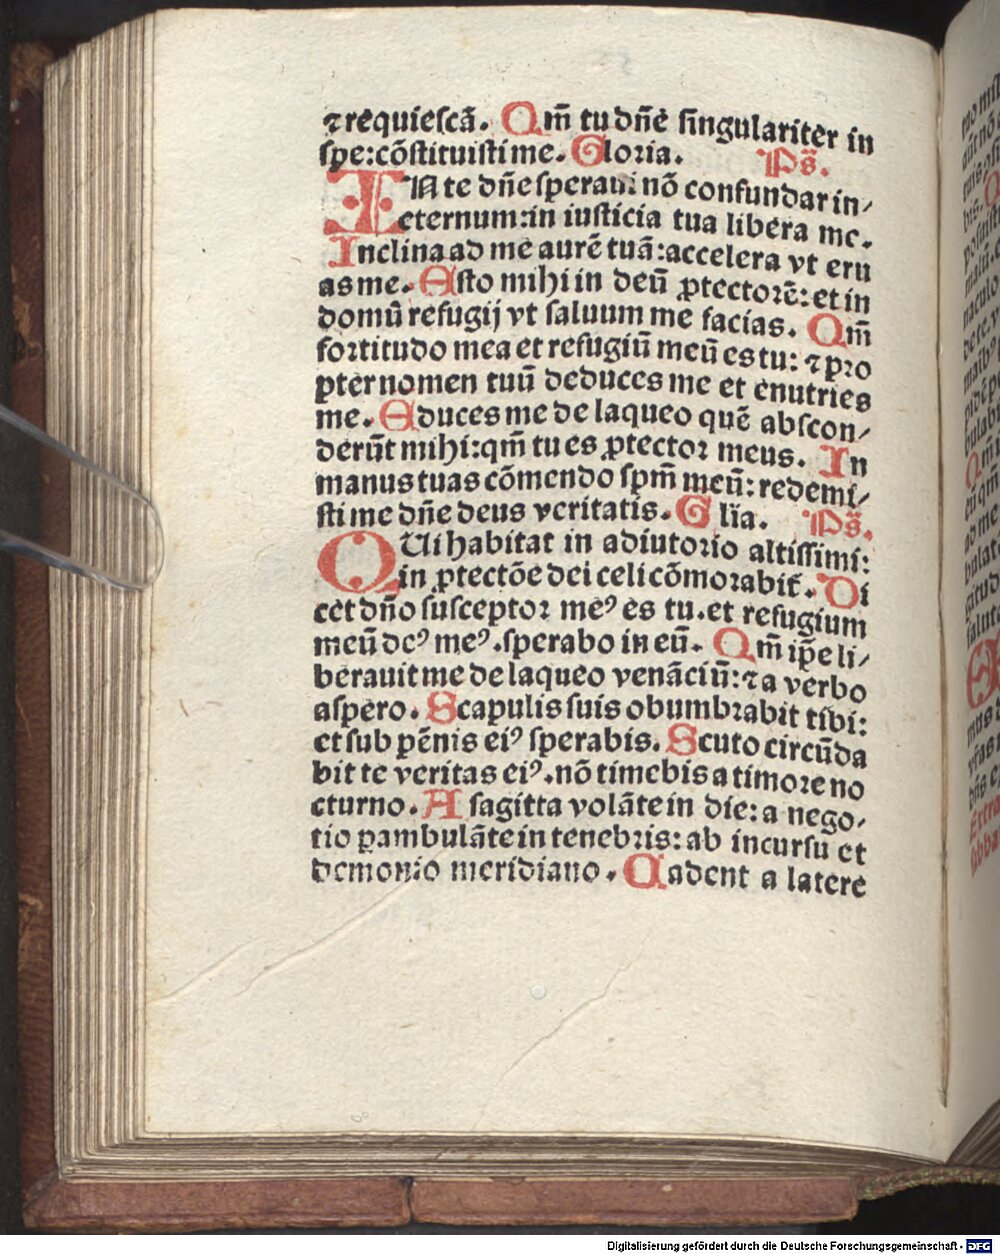 ⁊requieſcā. Qm̄ tu dn̄e ſingulariter in
ſpe:cōſtituiſti me. Gloria. Ps̄.
IN te dn̄e ſperaui nō confundar in/
eternum:in iuſticia tua libera me.
Inclina ad me aurē tuā:accelera vt eru
as me. Eſto mihi in deū ꝓtectorē: et in
domū refugij vt ſaluum me facias. Qm̄
fortitudo mea et refugiū meū es tu: ⁊ pꝛo
pter nomen tuū deduces me et enutries
me. Educes me de laqueo quē abſcon/
derūt mihi:qm̄ tu es ꝓtectoꝛ meus. In
manus tuas cōmendo ſpm̄ meū: redemi/
ſti me dn̄e deus veritatis. Glīa. Ps̄.
QUi habitat in adiutoꝛio altiſſimi:
in ꝓtectōe dei celi cōmoꝛabit̄. Di
cet dn̄o ſuſceptoꝛ me⁹ es tu.et refugium
meū de⁹ me⁹.ſperabo in eū. Qm̄ ip̄e li/
berauit me de laqueo venāciū: ⁊ a verbo
aſpero. Scapulis ſuis obumbꝛabit tibi:
et ſub pēnis ei⁹ ſperabis. Scuto circūda
bit te veritas ei⁹.nō timebis a timoꝛe no
cturno. A ſagitta volāte in die: a nego/
tio ꝑambulāte in tenebꝛis: ab incurſu et
demonio meridiano. Cadent a latere
Digitalisierung gefördert durch die Deutsche Forschungsgemeinschaft - DFG